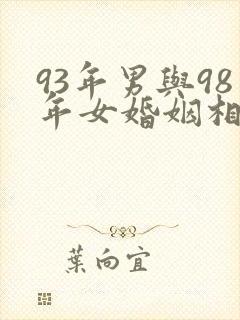 93年男與98
年女婚姻相
葉向宜